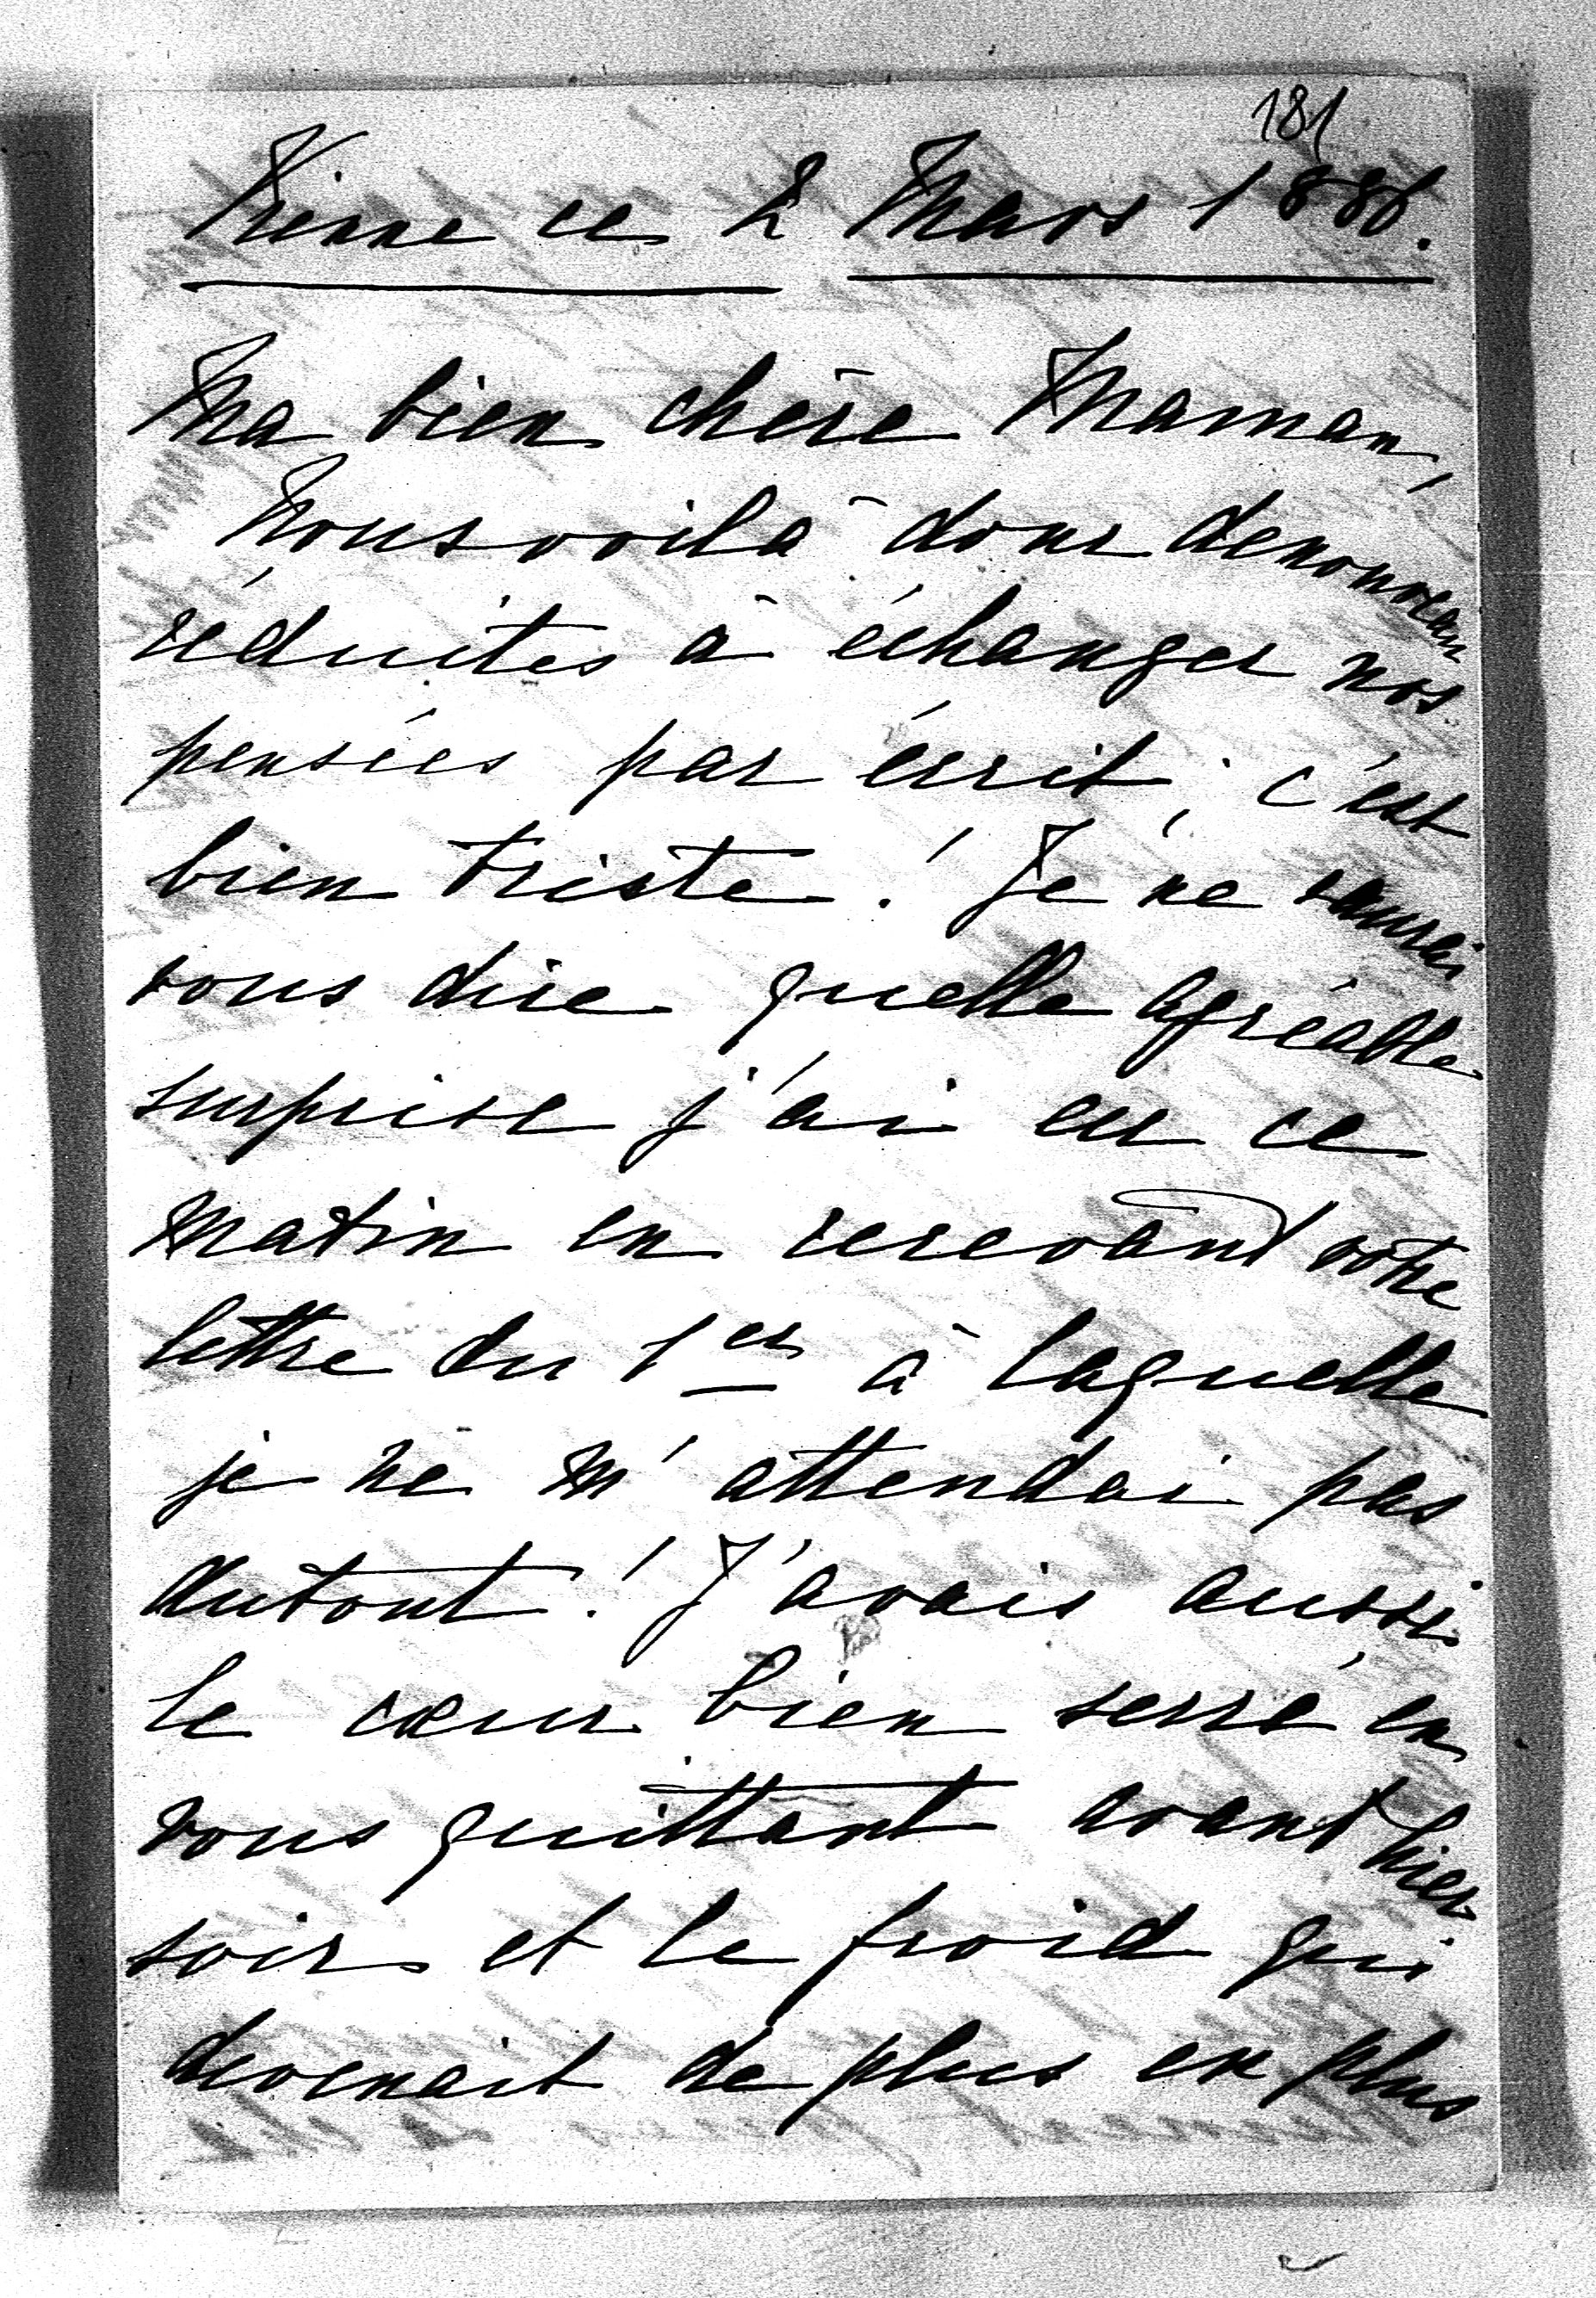 181
Vienne ce 2 Mars 1886.
Ma bien chère Maman,
Nous voilà donc denouveau
réduites à échanger nos
pensées par écrit, c'est
bien triste! Je ne saurais
vous dire quelle agréable
surprise j'ai eu ce
matin en recevant votre
lettre du 1er à laquelle
je ne m'attendai pas
dutout! J'avais aussi
le cœur bien serré en
vous quittant avant hier
soir et le froid qui
devenait de plus en plus